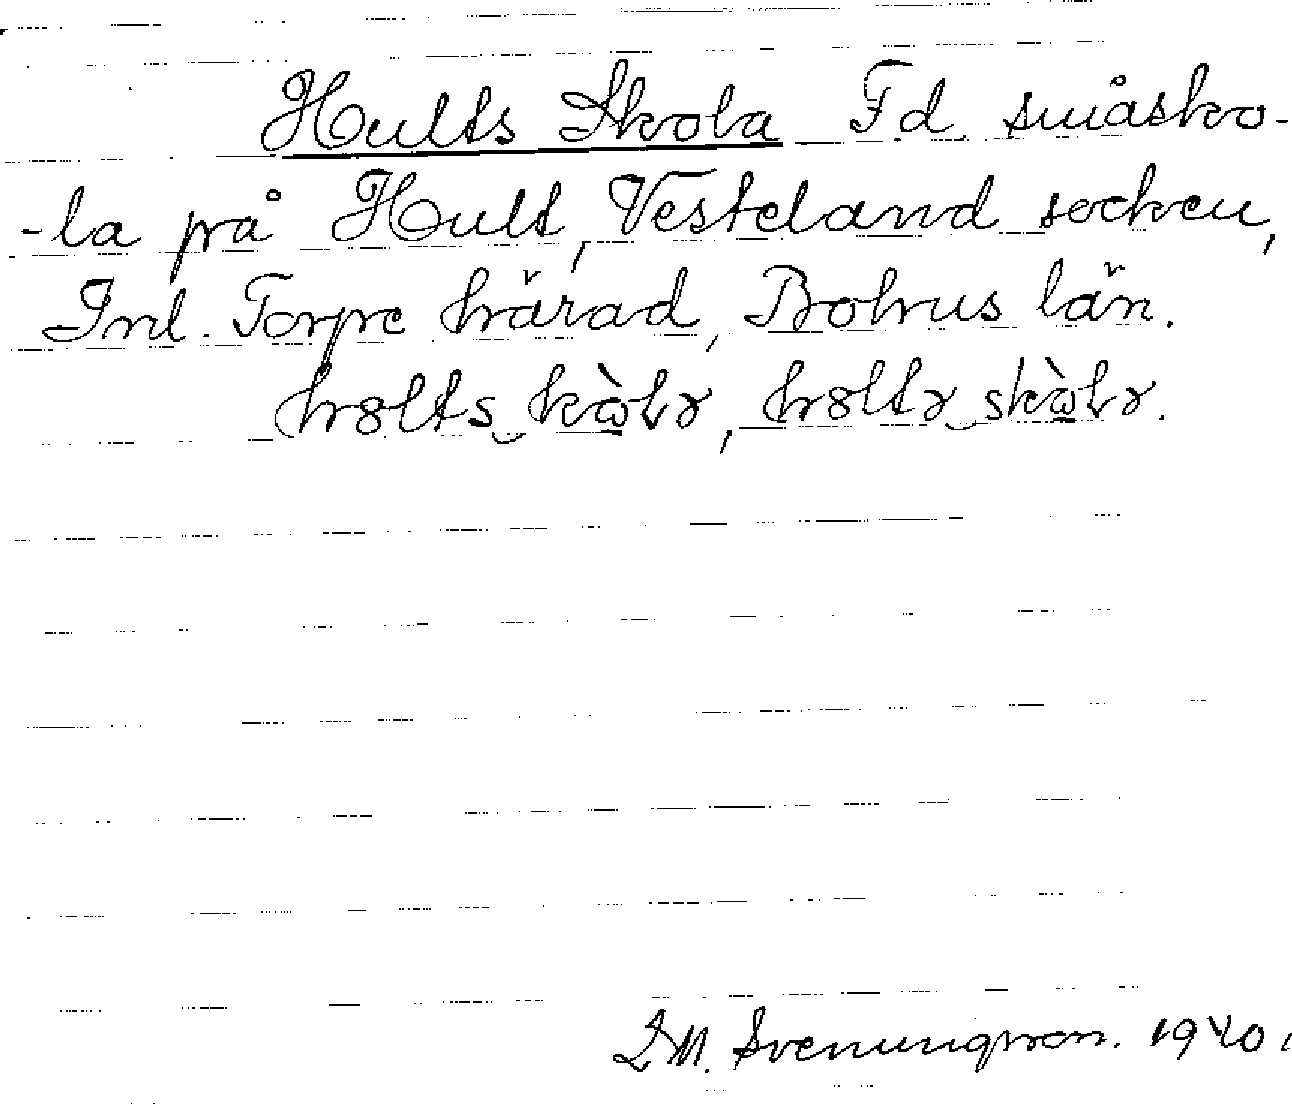 Hults Skola F.d. småsko-
-la på Hult, Vesteland socken,
Inl. Torpe härad, Bohus län.
hɤlts skɷ̀lɤ, hɤltɤ skɷ̀lɤ.
M. Svenungsson. 1940.